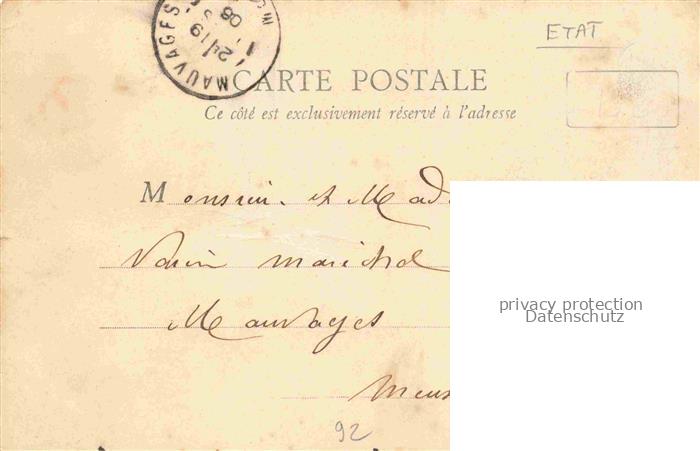 MAUVAGES
08
ETAT
CARTE POSTALE
Ce côté est exclusivement réservé à l'adresse
Monsieur et Mad
maréchal
Mauvages
Meus
privacy protection
Datenschutz
92